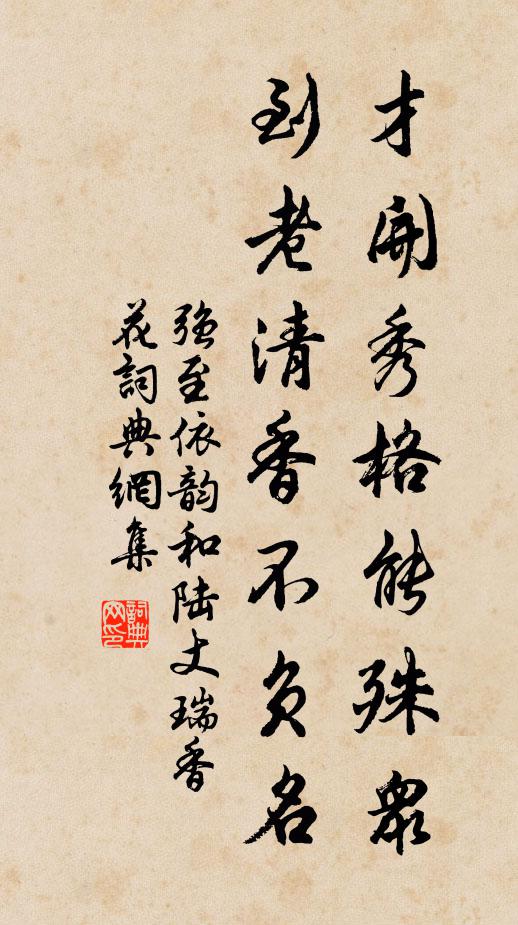 才開秀格能殊眾
到老清香不負名
強至依韵和陆丈瑞香
花詞典網集
詞典网印